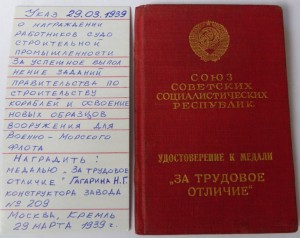 Указ 29.03.1939
о награждении
работников судо
строительной
промышленности
За успешное выпол
нение заданий
правительства по
строительству
кораблей и освоение
новых образцов
вооружения для
Военно-Морского
Флота
Наградить:
медалью "За трудовое
отличие" Гагарина Н.Г.
конструктора завода
№ 209
Москва, Кремль
29 марта 1939 г.
СОЮЗ
СОВЕТСКИХ
СОЦИАЛИСТИЧЕСКИХ
РЕСПУБЛИК
УДОСТОВЕРЕНИЕ К МЕДАЛИ
"ЗА ТРУДОВОЕ
ОТЛИЧИЕ"